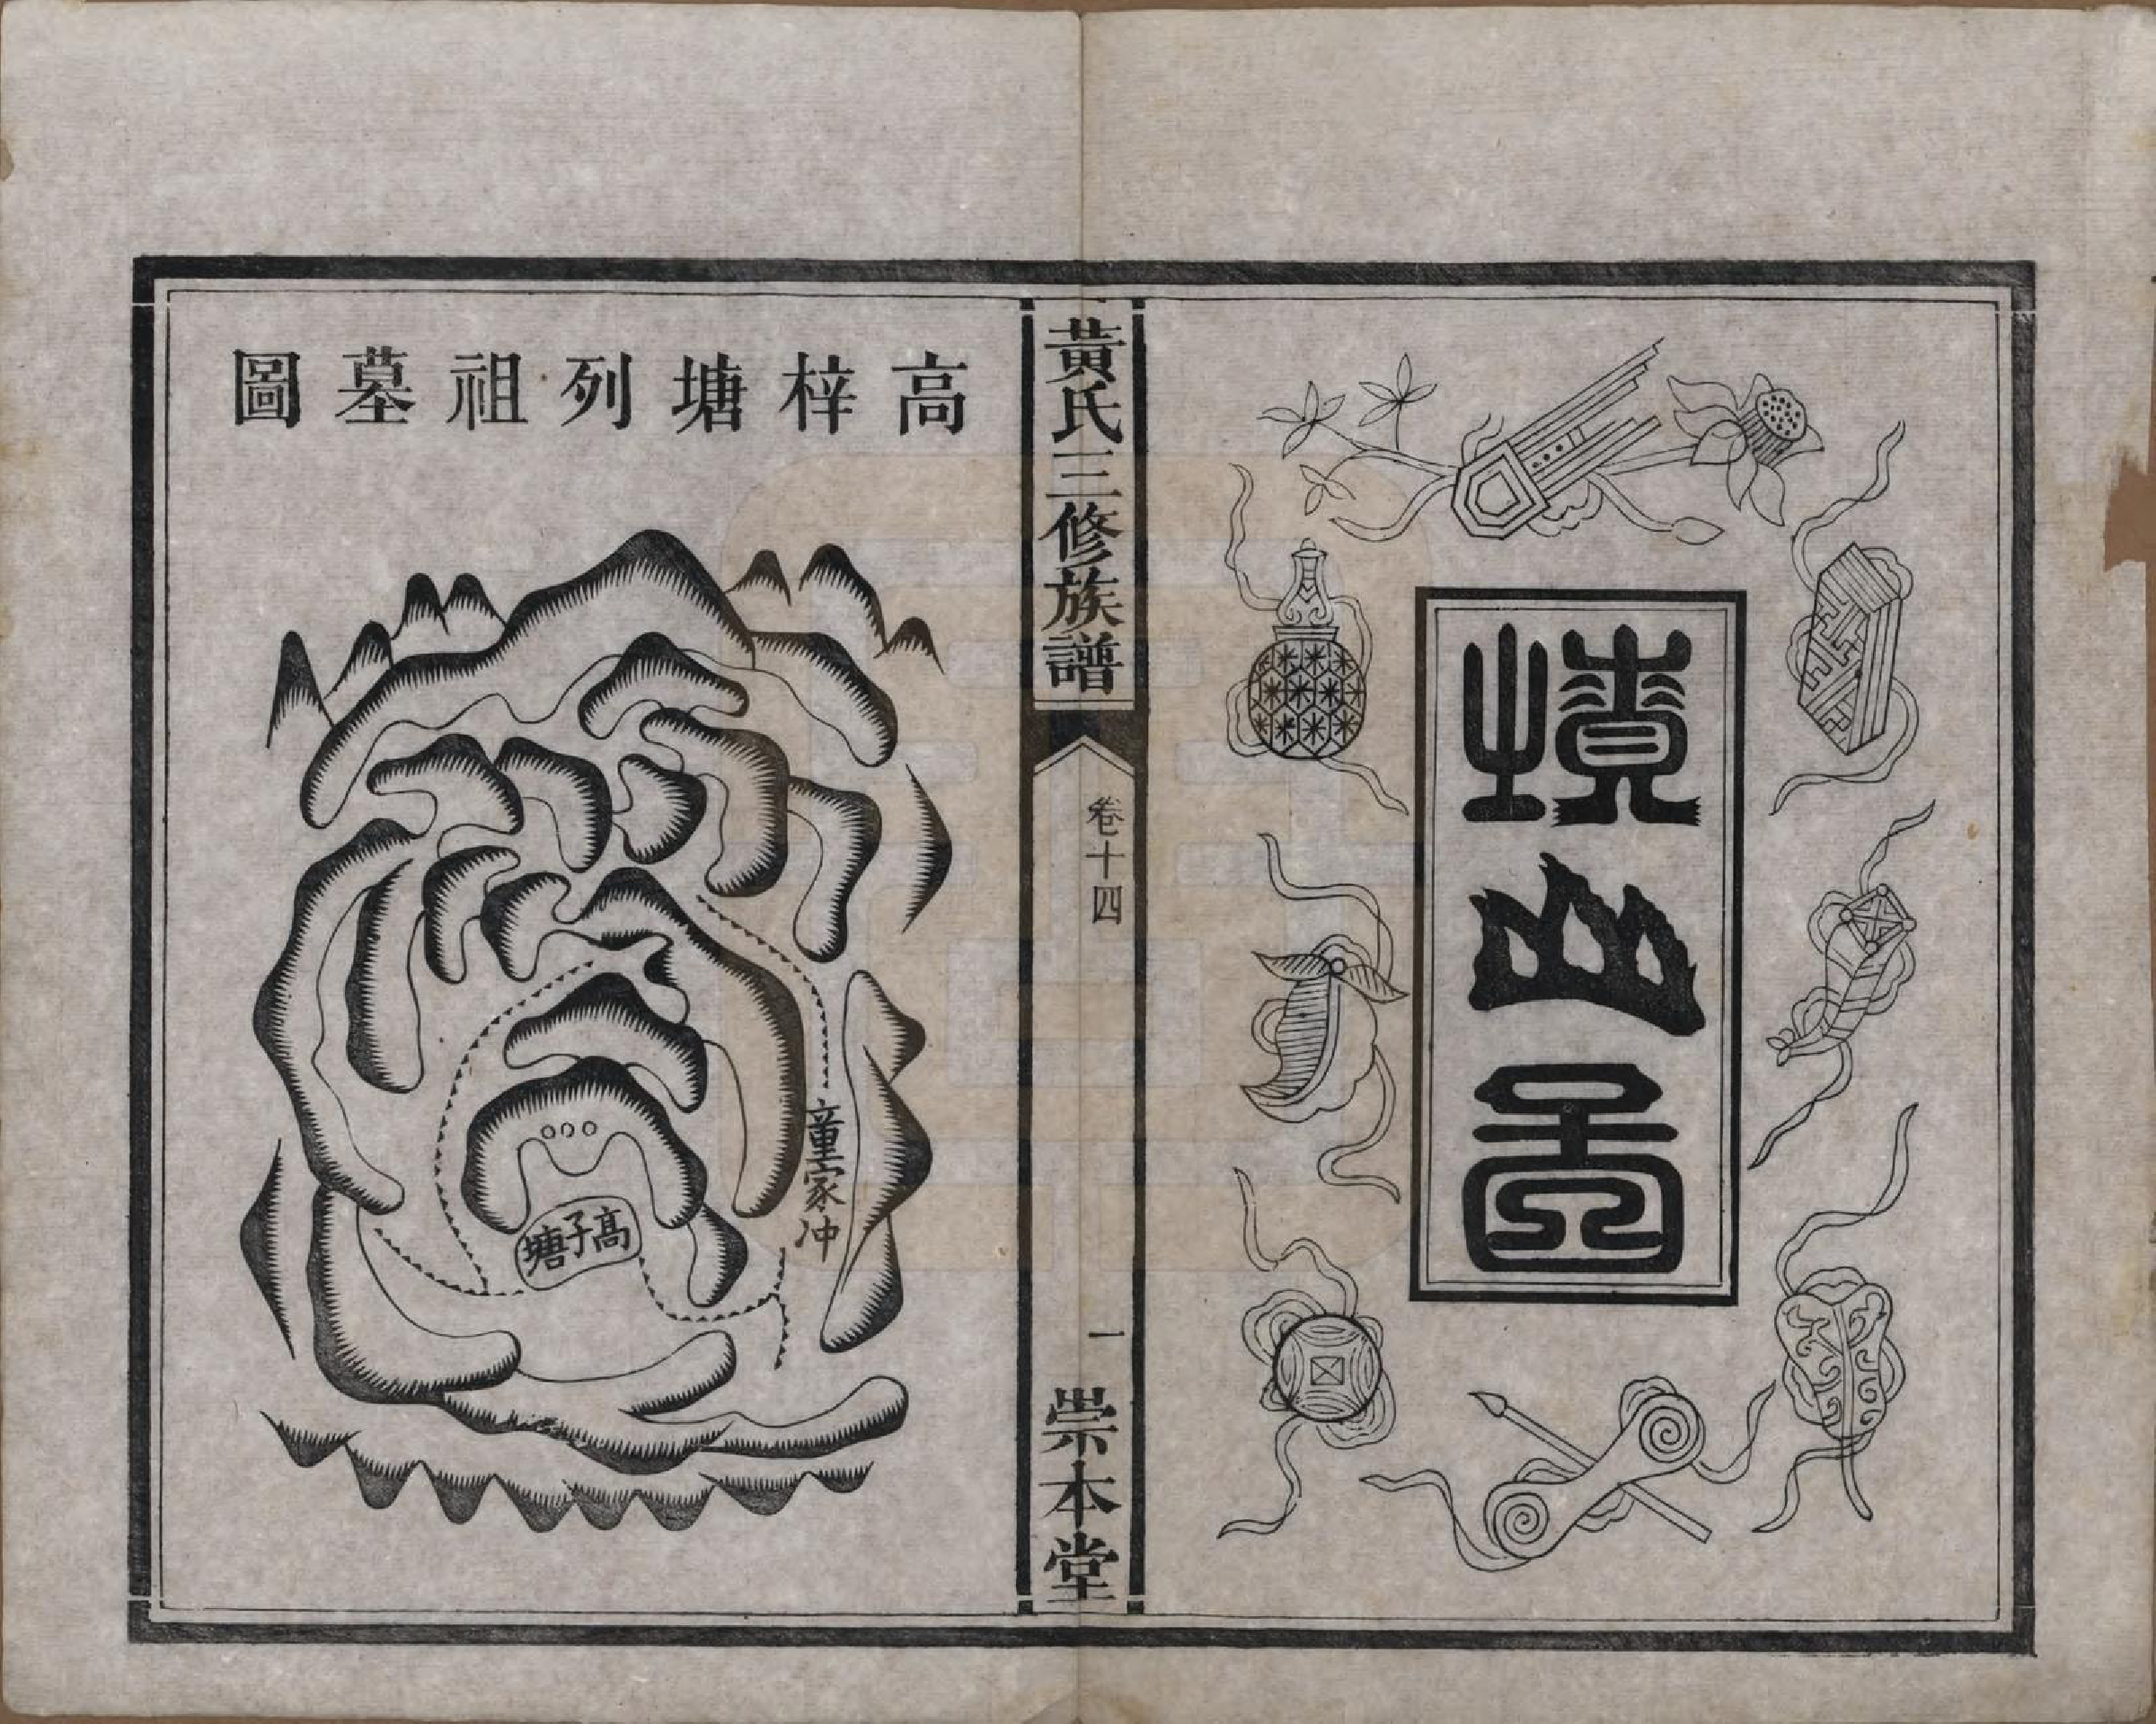 墳山圖
黃氏三修族譜
卷十四
一
崇本堂
高梓塘列祖墓圖
童家冲
高子塘